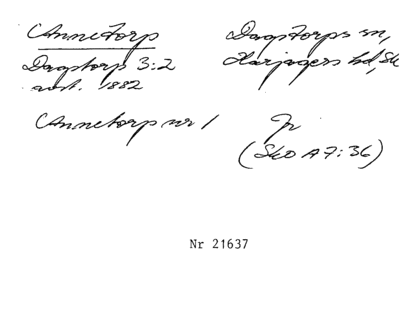 Annetorp
Dagstorps sn,
Dagstorp 3:2
Harjagers hd, Sk
avst. 1882
Annetorp nr 1
Jr
(SkO A7:36)
Nr 21637